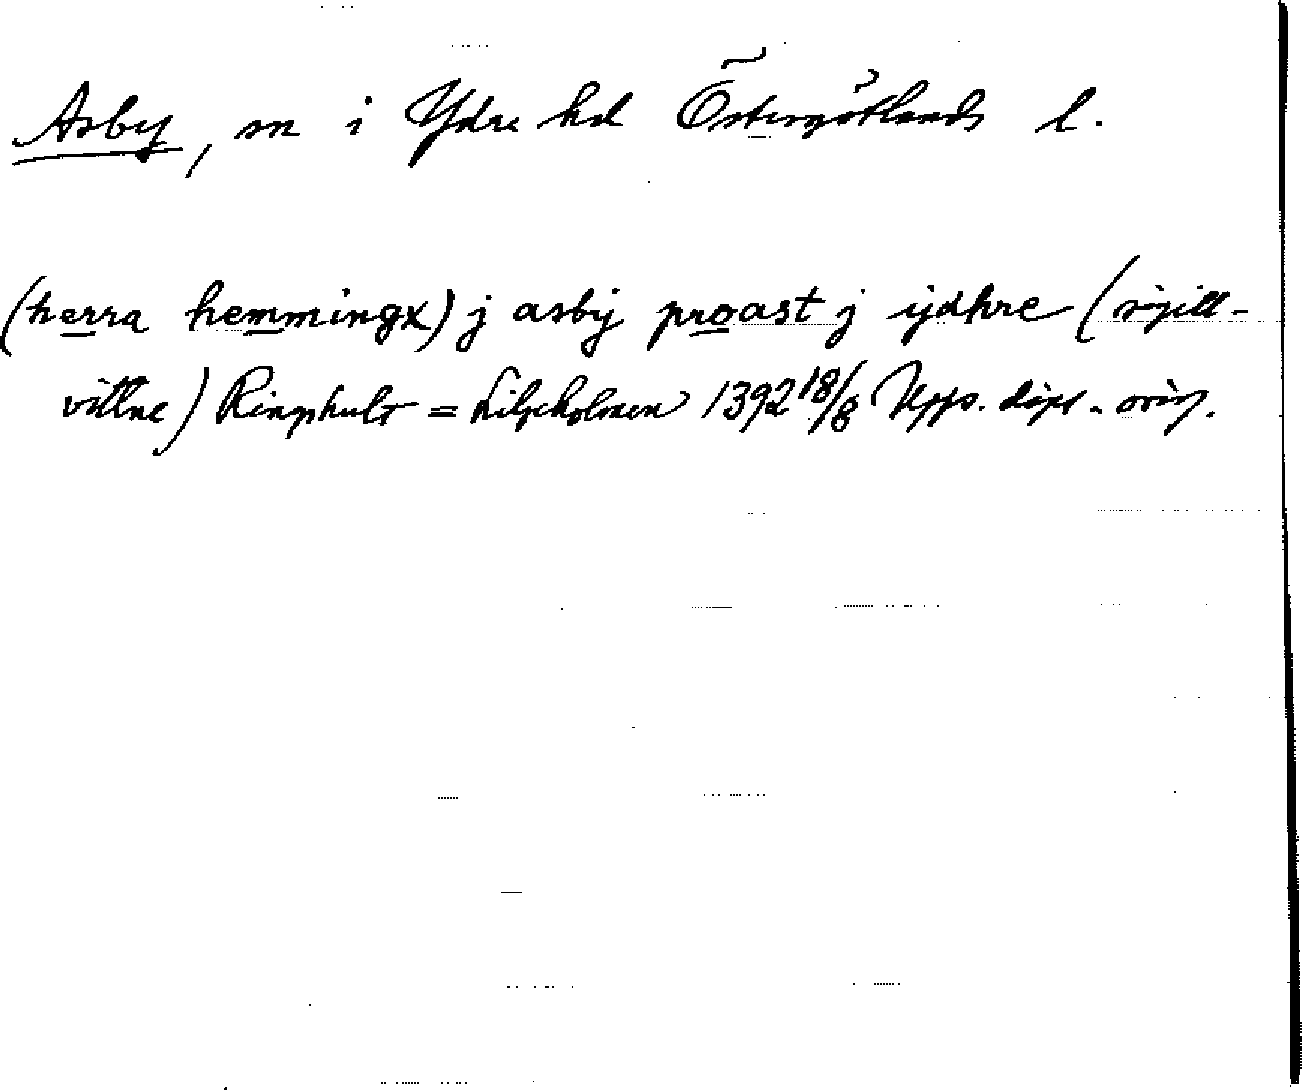 Asby, sn i Ydre hd Östergötlands l.
(herra hemmingx) j asbÿ proast j ÿdhre (sigill-
vittne) Ringhult = Liljeholmen 1392 18/8 Upps. dipl. orig.